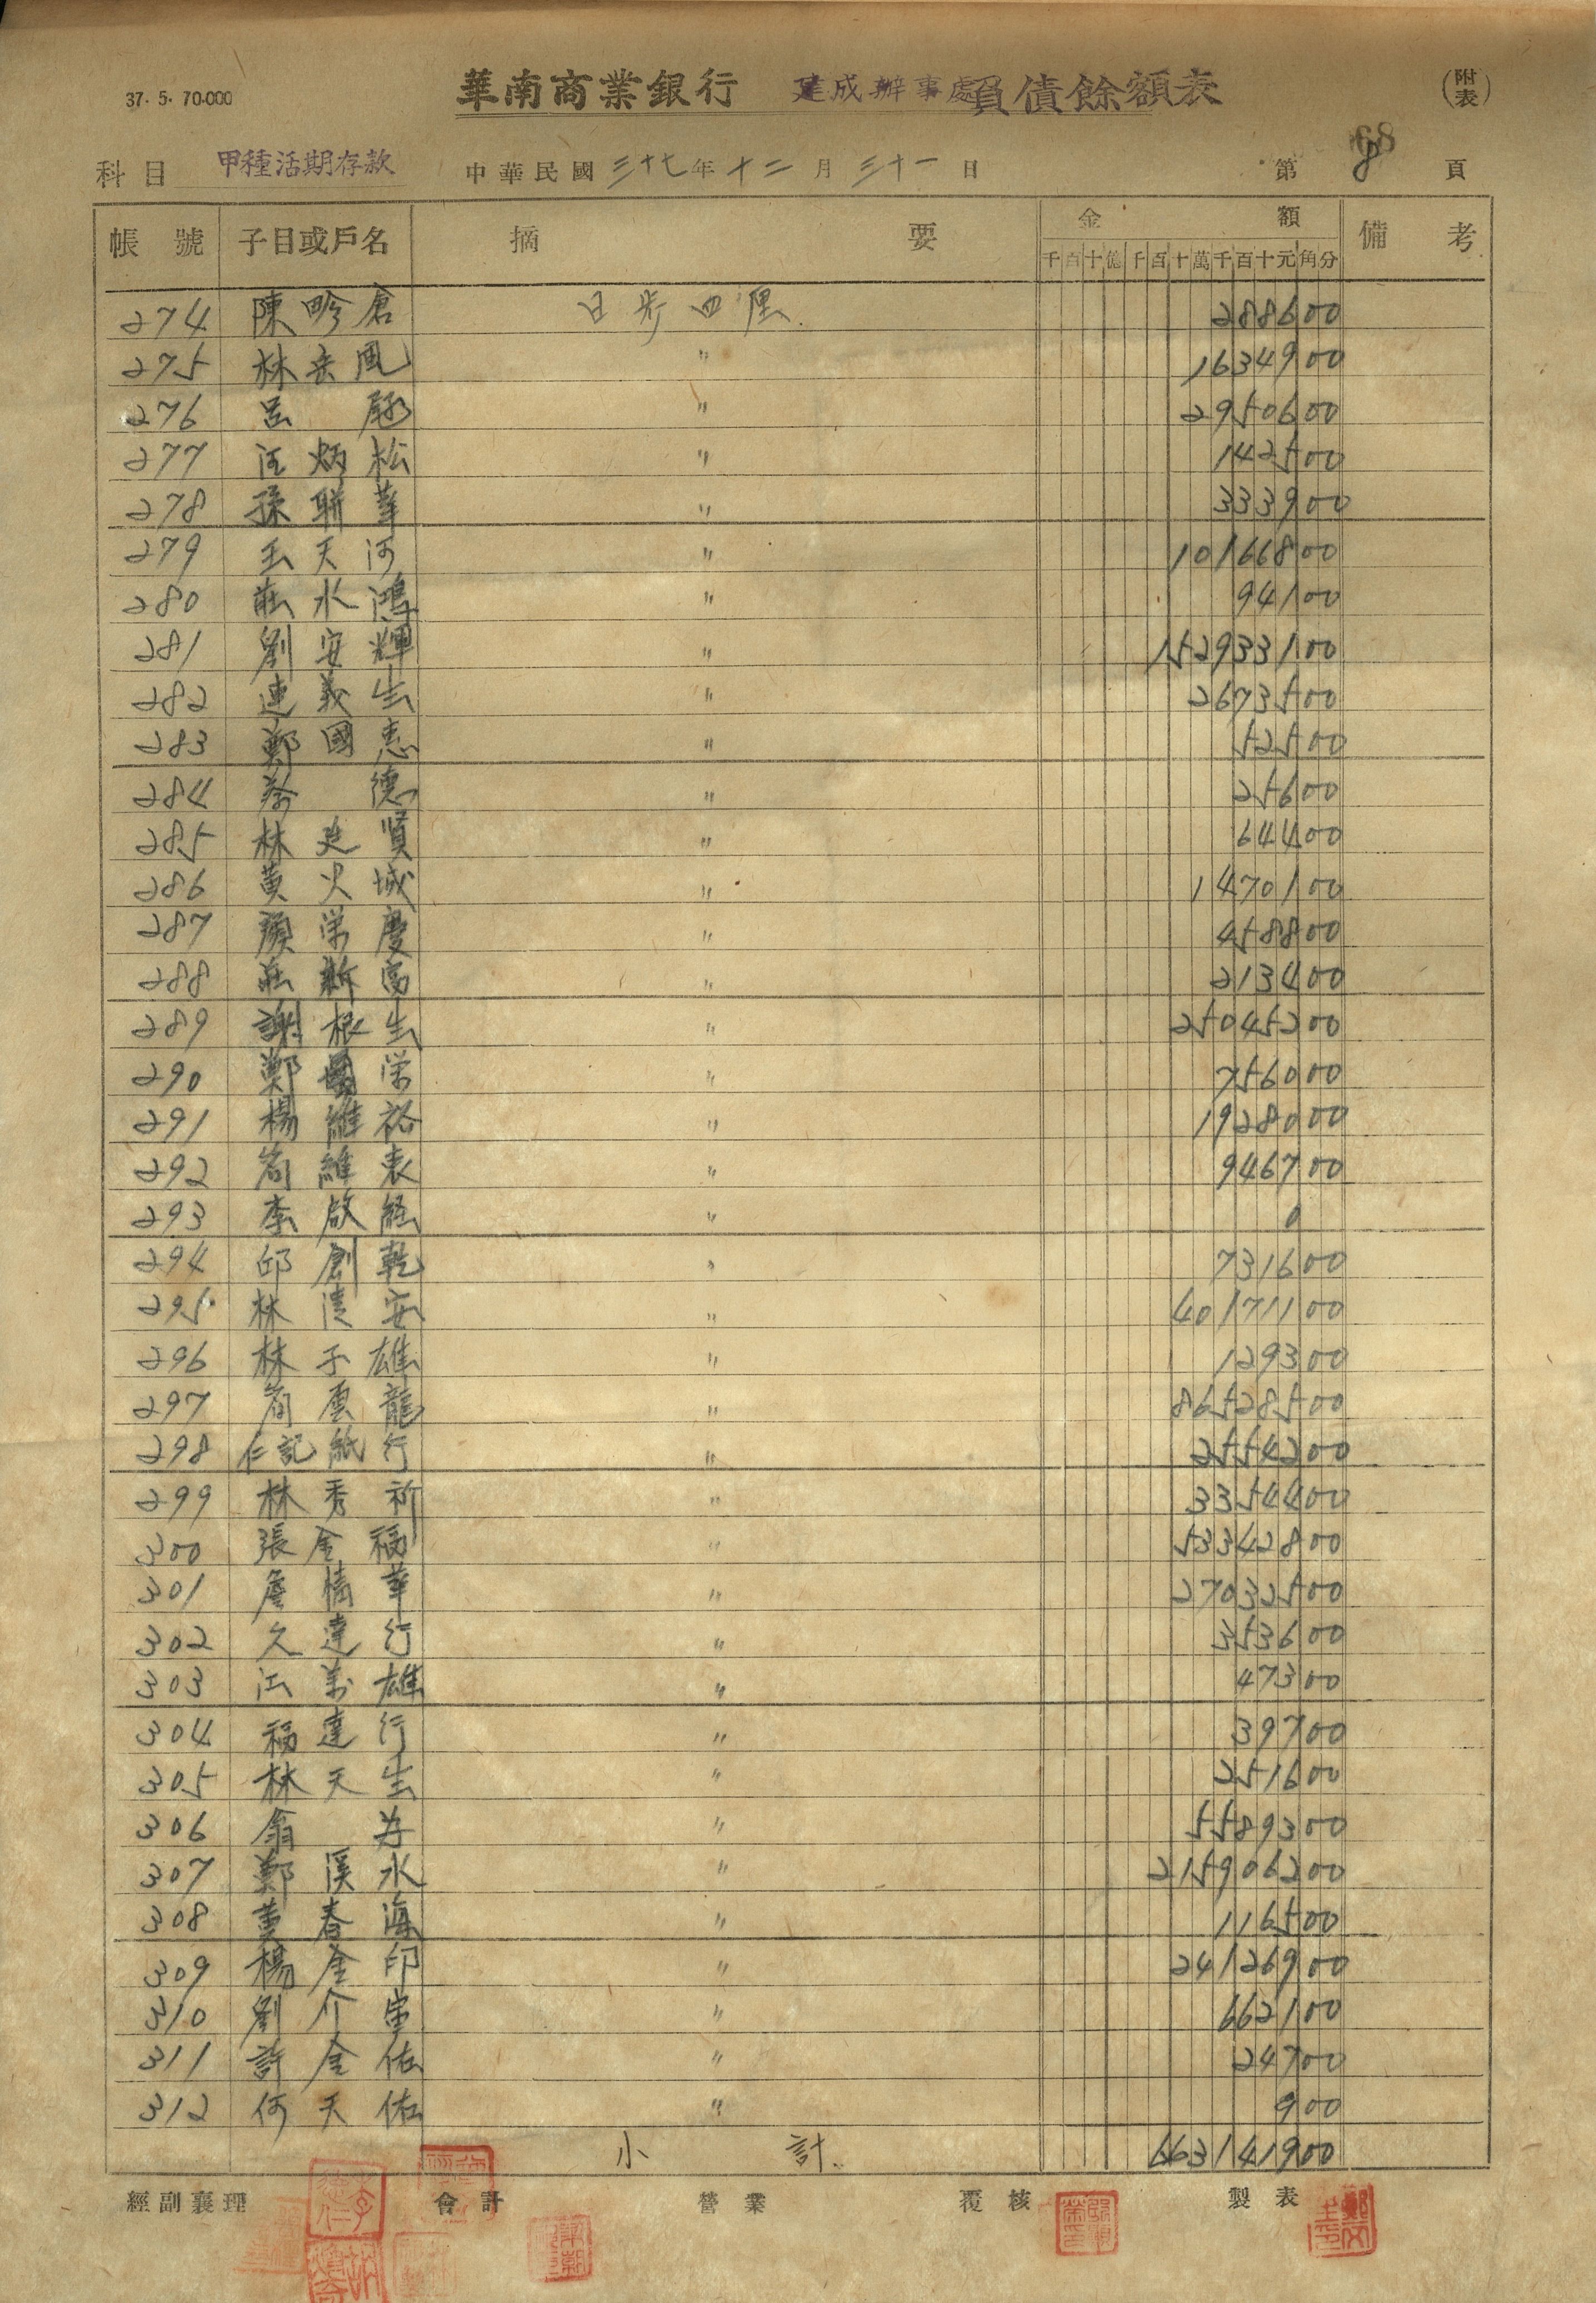 37. 5. 70.000
華南商業銀行 建成辦事處 負債餘額表 (附表)
科目 甲種活期存款 中華民國三十七年十二月三十一日 第 68 8 頁
帳號 子目或戶名 摘要 金額 備考
千百十億千百十萬千百十元角分
274 陳 倉 日步四厘 288600
275 林岳風 〃 1634900
276 呂 〃 2950600
277 江炳松 〃 142500
278 孫联華 〃 333900
279 王天河 〃 10166800
280 莊水鴻 〃 94100
281 劉安輝 〃 152933100
282 連義生 〃 2673500
283 鄭國惠 〃 52500
284 蔡德 〃 25600
285 林廷賢 〃 64400
286 黃火城 〃 1470100
287 顏栄慶 〃 458800
288 莊新富 〃 213400
289 謝根生 〃 25045200
290 鄭國栄 〃 756000
291 楊維裕 〃 1928000
292 維 〃 946700
293 李啟經 〃 0
294 邱創乾 〃 731600
295 林清安 〃 40171100
296 林子雄 〃 129300
297 雲龍 〃 86528500
298 仁記紙行 〃 2554200
299 林秀祈 〃 3354400
300 張金福 〃 53342800
301 詹情華 〃 27032500
302 久達行 〃 353600
303 江萬雄 〃 47300
304 福達行 〃 39700
305 林天生 〃 251600
306 翁 〃 5589300
307 鄭溪水 〃 215906200
308 黃春海 〃 116500
309 楊金印 〃 24126900
310 劉介宙 〃 662100
311 許金佑 〃 24700
312 何天佑 〃 900
小計 663141900
經副襄理 會計 營業 覆核 製表